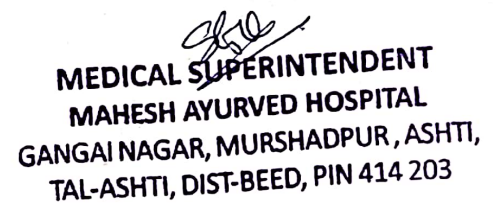 MEDICAL SUPERINTENDENT
MAHESH AYURVED HOSPITAL
GANGAI NAGAR, MURSHADPUR, ASHTI,
TAL-ASHTI, DIST-BEED, PIN 414 203